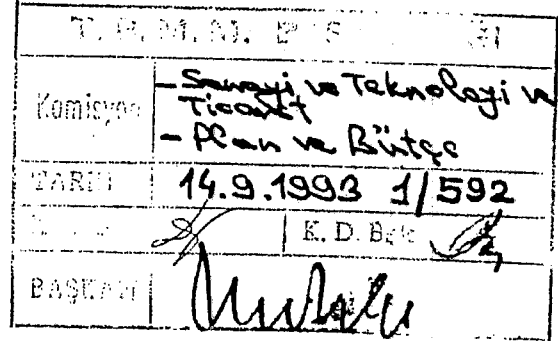 T. B. M. M.
Komisyon
- Sanayi ve Teknoloji ve
Ticaret
- Plan ve Bütçe
TARİH 14.9.1993 1/592
K. D. Bşk
BAŞKAN